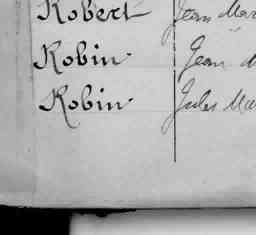 Robert Jean Mar
Robin Jean M
Robin Jules Ma